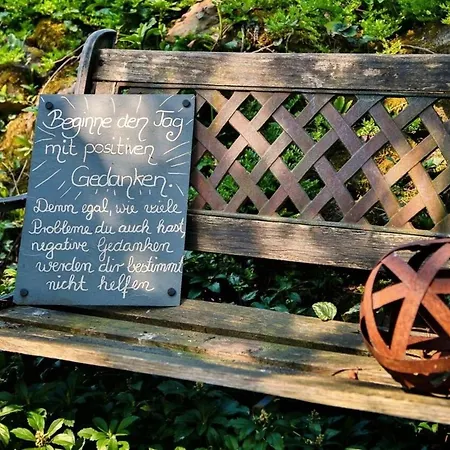 Beginne den Tag
mit positiven
Gedanken.
Denn egal, wie viele
Probleme du auch hast
negative Gedanken
werden dir bestimmt
nicht helfen